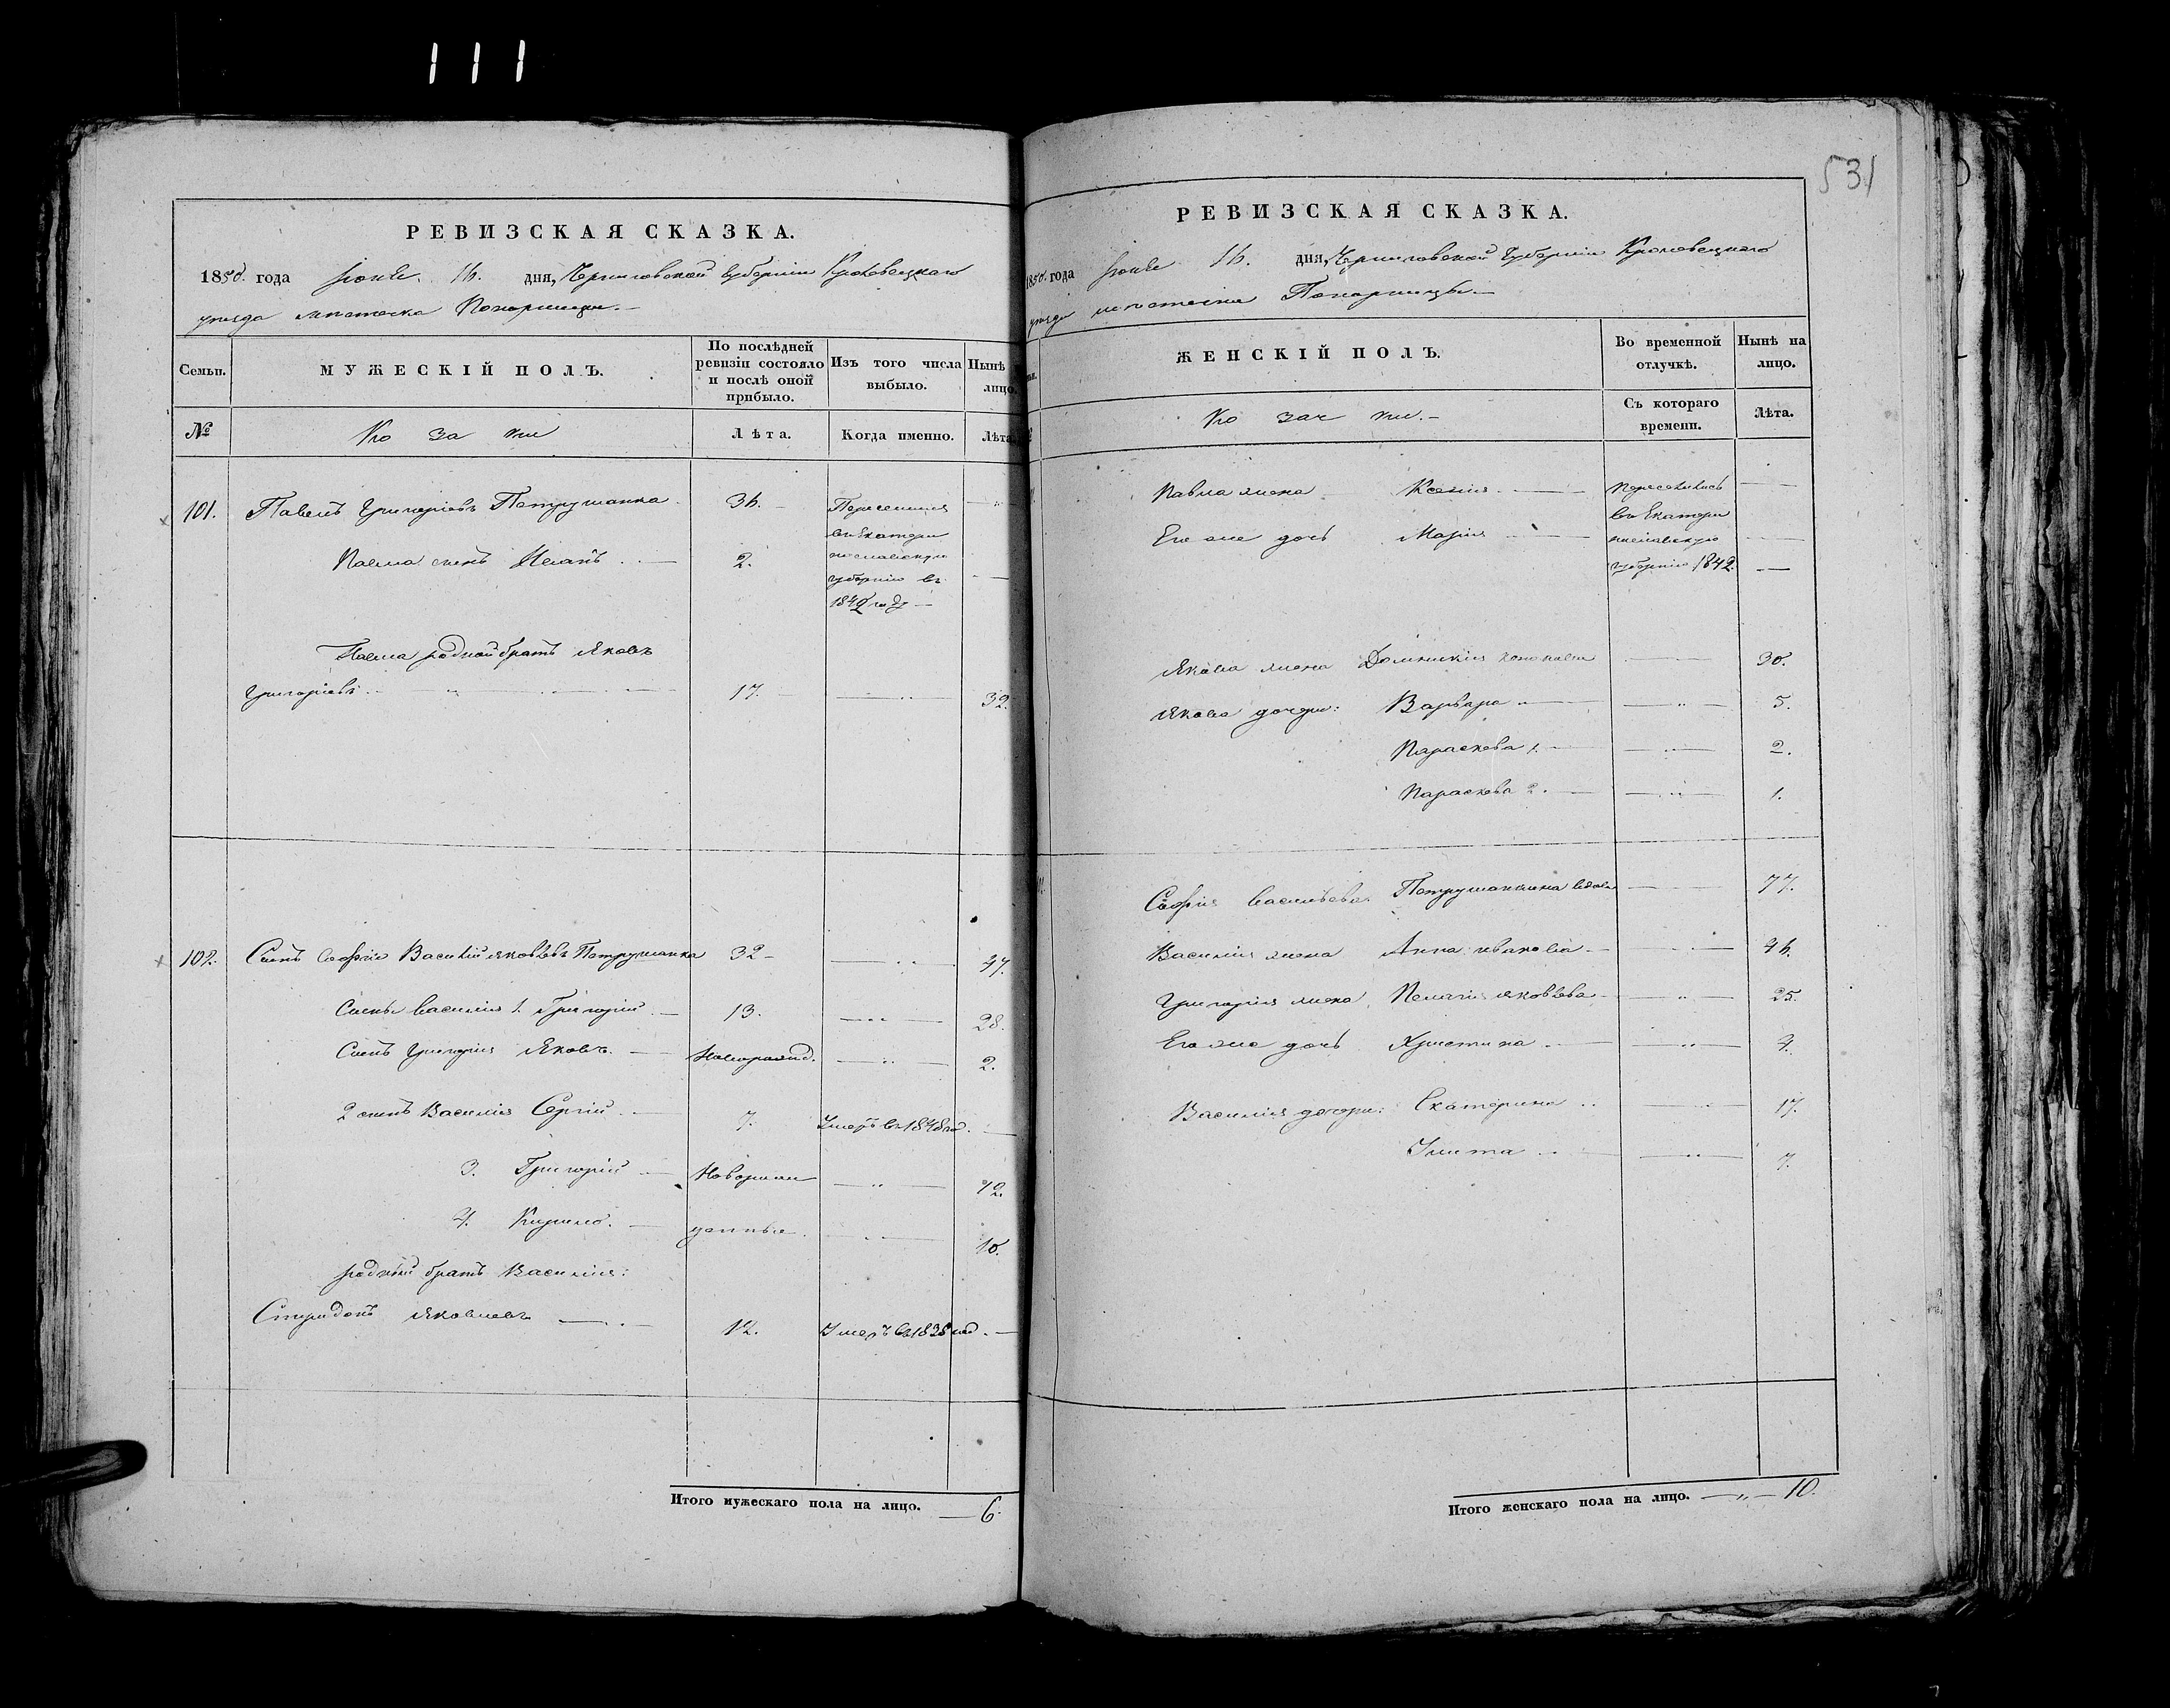 111
531
РЕВИЗСКАЯ СКАЗКА.
1850. года Іюнь. 16. дня, Черниговской Губерніи Кролевецкаго
уезда местечка Понорницы.
Семьи.
МУЖЕСКІЙ ПОЛЪ.
По послѣдней ревизіи состояло и послѣ оной прибыло.
Изъ того числа выбыло.
Нынѣ лицо.
№
Ко за ки
Лѣта.
Когда именно.
Лѣта
101. Павелъ Григоріевъ Петрушанка 36.
Переселился
въ Екатери
нославскую
губернію въ
1842 году
Павла сынъ Иванъ 2.
Павла родной братъ Яковъ
Григоріевъ 17. 32.
102. Сынъ Софіи Василій Яковлевъ Петрушанка 32 47.
Сыны Василія 1. Григорій 13. 28.
Сынъ Григорія Яковъ. Новорожд. 2.
2 сынъ Василія Сергій 7. Умеръ въ 1848 год.
3. ГригорійНоворож 12.
4. Кирило. денные. 10.
родный братъ Василія:
Спиридонъ Яковлевъ 12. Умеръ въ 1838 год.
Итого мужескаго пола на лицо. 6.
РЕВИЗСКАЯ СКАЗКА.
1850. года Іюнь 16. дня, Черниговской Губерніи Кролевецкаго
уезда местечка Понорницы.
ЖЕНСКІЙ ПОЛЪ.
Во временной отлучкѣ.
Нынѣ на лицо.
Ко зач ки.
Съ котораго времени.
Лѣта.
Павла жена Ксенія
Переселились
въ Екатери
нославскую
губернію 1842.
Его же дочь Марія
Якова жена Домникія 30.
Якова дочери: Варвара 5.
Параскева 1. 2.
Параскева 2. 1.
Софія Васильева Петрушанкина вдова 77.
Василія жена Анна Иванова 46.
Григорія жена Пелагія Яковлева 25.
Его же дочь Христина 4.
Василія дочери: Екатерина 17.
Улита 7.
Итого женскаго пола на лицо. 10.